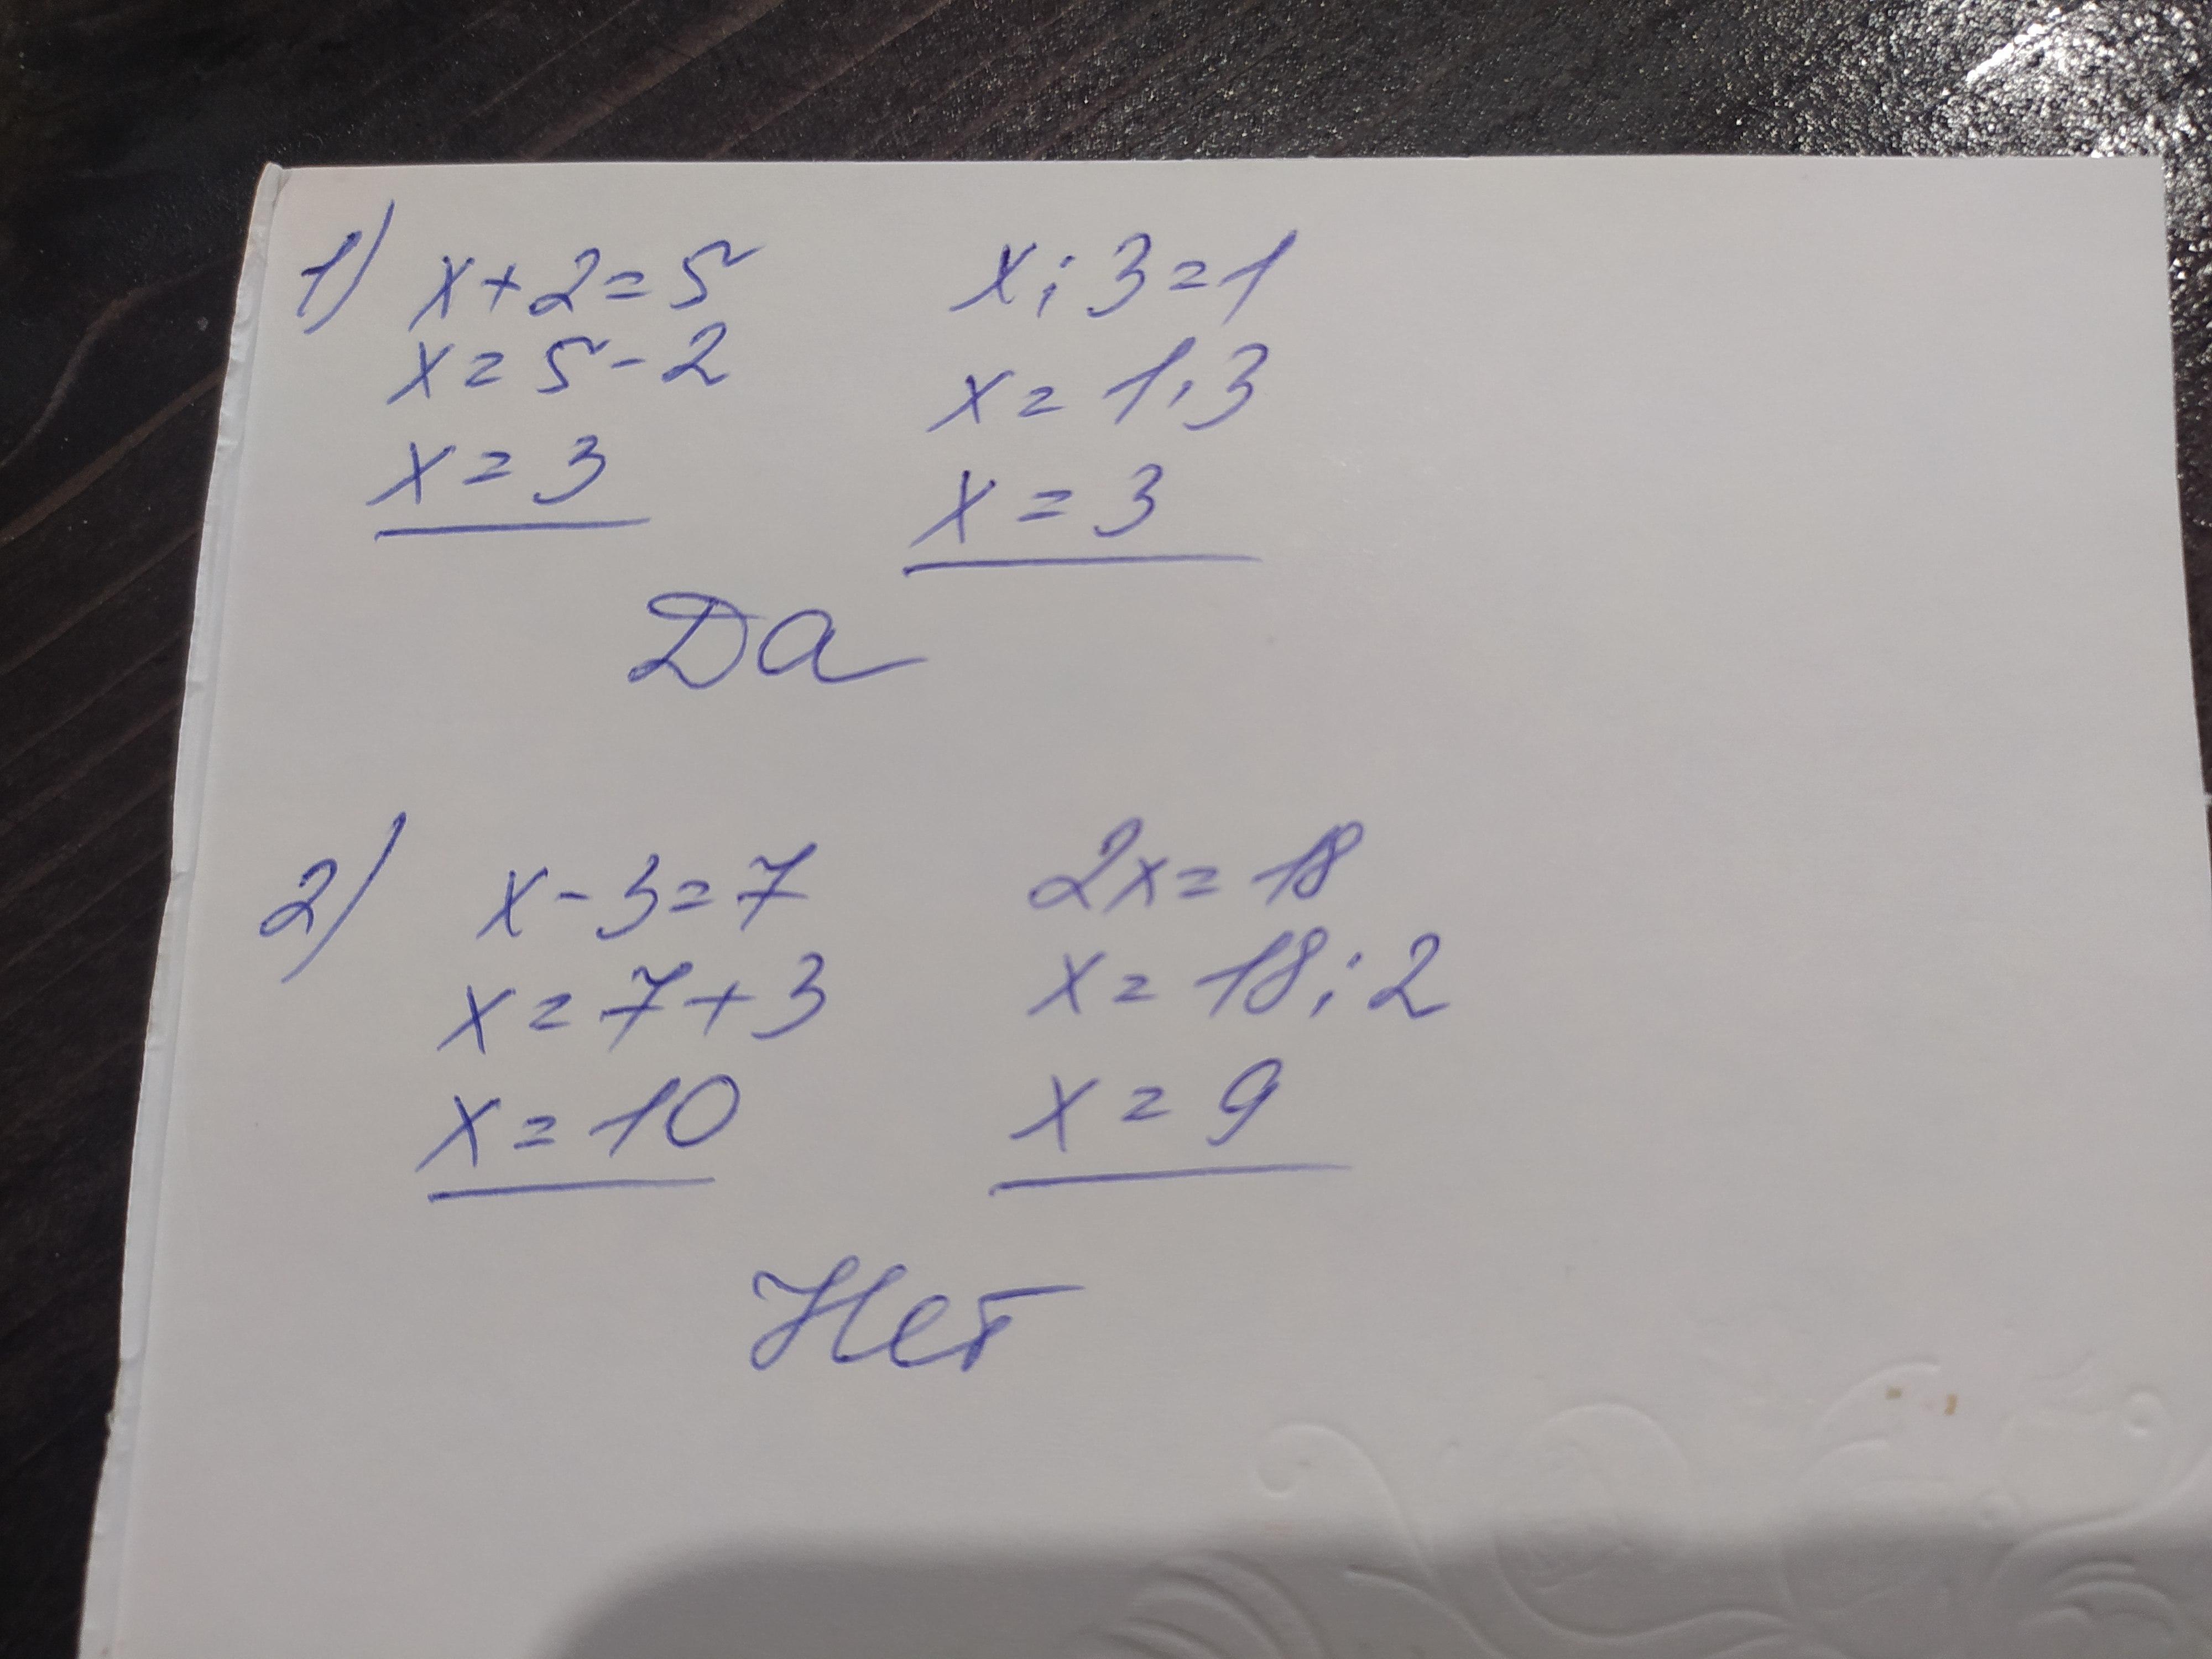 1) x+2=5 x:3=1
x=5-2 x=1·3
x=3 x=3
Да
2) x-3=7 2x=18
x=7+3 x=18:2
x=10 x=9
Нет